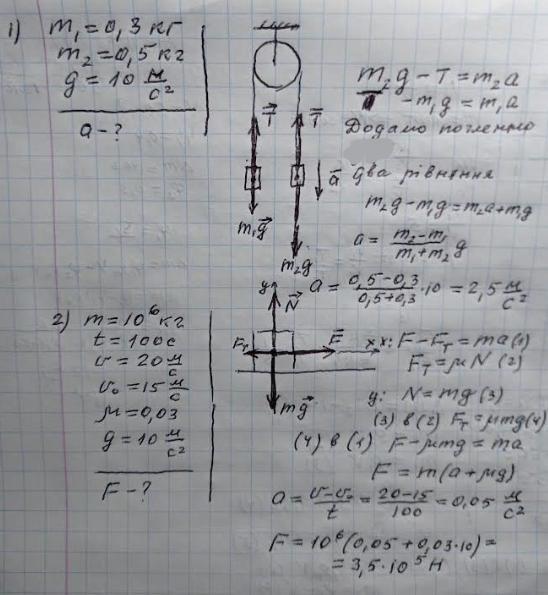 1) m₁ = 0,3 кг
m₂ = 0,5 кг
g = 10 м/с²
a - ?
T⃗ T⃗
a⃗
m₁g⃗
m₂g
m₂g - T = m₂a
- m₁g = m₁a
Додамо почленно
два рівняння
m₂g - m₁g = m₂a + m₁g
a = (m₂ - m₁)/(m₁ + m₂) g
a = (0,5 - 0,3)/(0,5 + 0,3) · 10 = 2,5 м/с²
2) m = 10⁶ кг
t = 100 с
v = 20 м/с
v₀ = 15 м/с
μ = 0,03
g = 10 м/с²
F - ?
y N⃗
Fт F⃗ x
mg⃗
x: F - Fт = ma (1)
Fт = μN (2)
y: N = mg (3)
(3) в (2) Fт = μmg (4)
(4) в (1) F - μmg = ma
F = m(a + μg)
a = (v - v₀)/t = (20 - 15)/100 = 0,05 м/с²
F = 10⁶(0,05 + 0,03·10) =
= 3,5·10⁵ Н